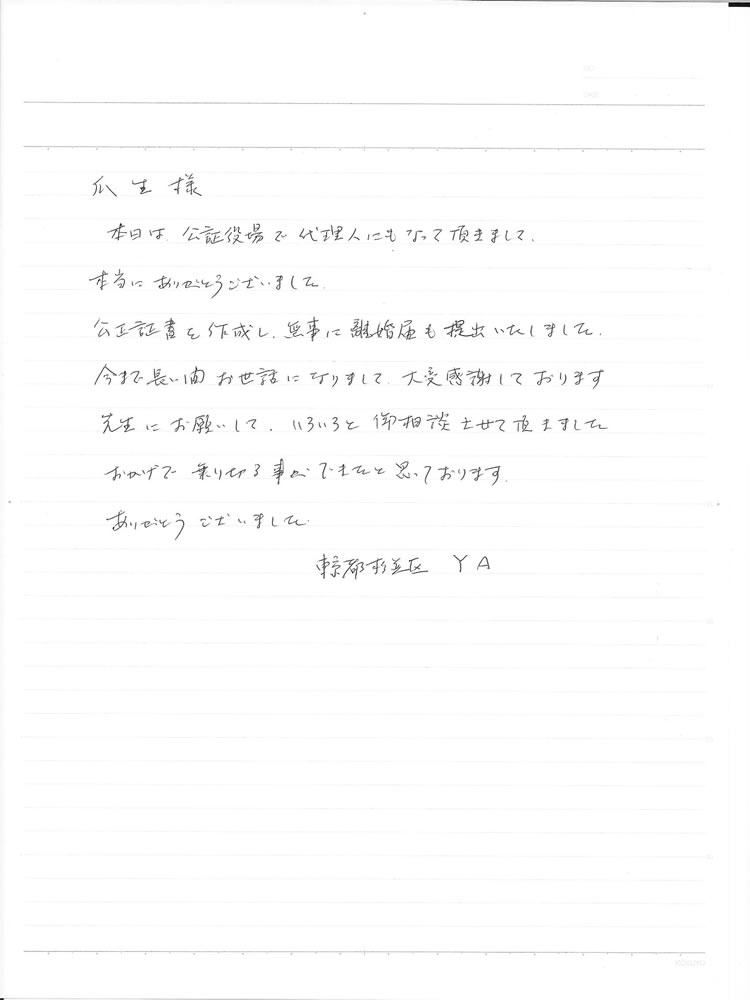 瓜生様
本日は 公証役場で 代理人にもなって頂きまして、
本当に ありがとうございました。
公正証書を作成し、無事に離婚届も提出いたしました。
今まで長い間 お世話になりまして、大変感謝しております
先生に お願いして、いろいろと 御相談させて頂きました
おかげで 乗り切る事ができたと思っております。
ありがとう ございました。
東京都杉並区 YA
KOKUYO